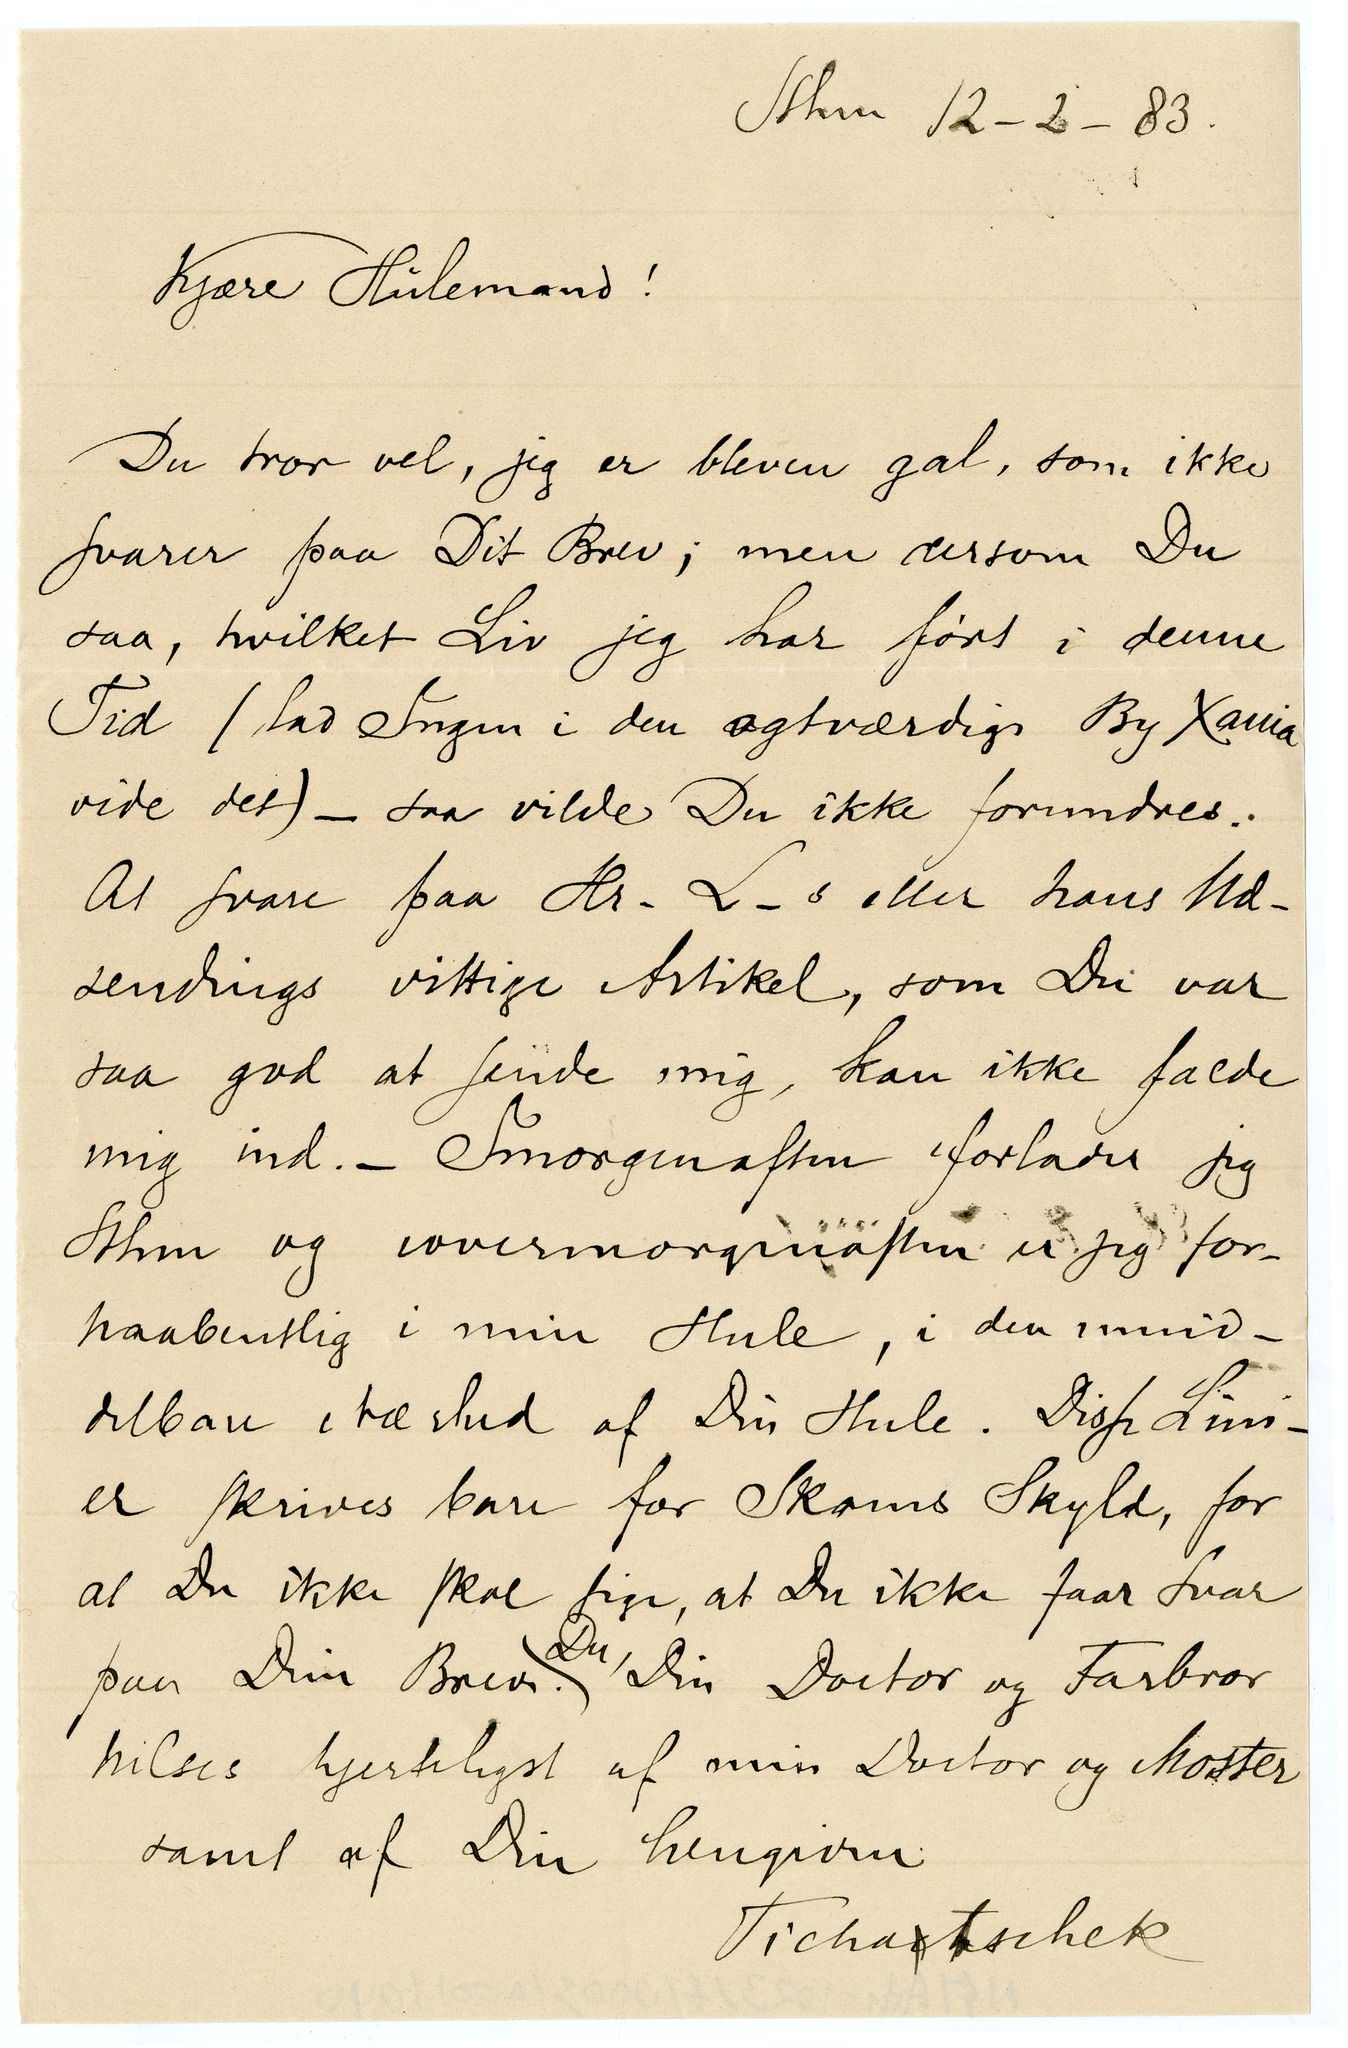 Sthm 12-2-83.
Kjære Hulemand!
Du tror vel, jeg er bleven gal, som ikke
svarer paa Dit Brev; men dersom Du
saa, hvilket Liv jeg har ført i denne
Tid (lad Ingen i den agtværdige By Xania
vide det) – saa vilde Du ikke forundres.
At svare paa Hr. L–s eller hans Ud-
sendings vittige Artikel, som Du var
saa god at sende mig, kan ikke falde
mig ind. – Imorgenaften forlader jeg
Sthm og iovermorgenaften er jeg for-
haabentlig i min Hule, i den umid-
delbare Nærhed af Din Hule. Disse Lini-
er skrives bare for Skams Skyld, for
at Du ikke skal sige, at Du ikke faar Svar
paa Din Brev. Du, Din Doctor og Farbror
hilses hjerteligst af min Doctor og Moster
samt af Din hengivne
Tichatschek